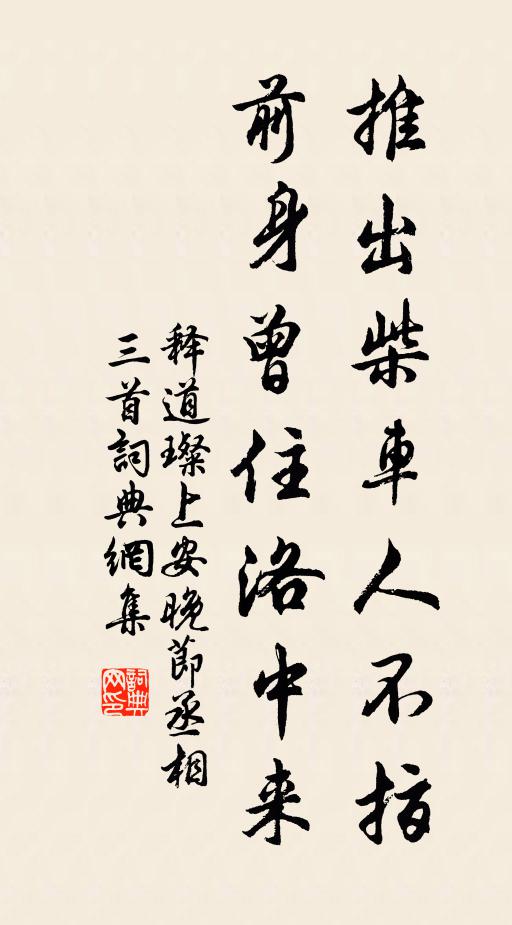 推出柴車人不指
前身曾住洛中来
释道璨上安晚節丞相
三首詞典網集
詞典
网印